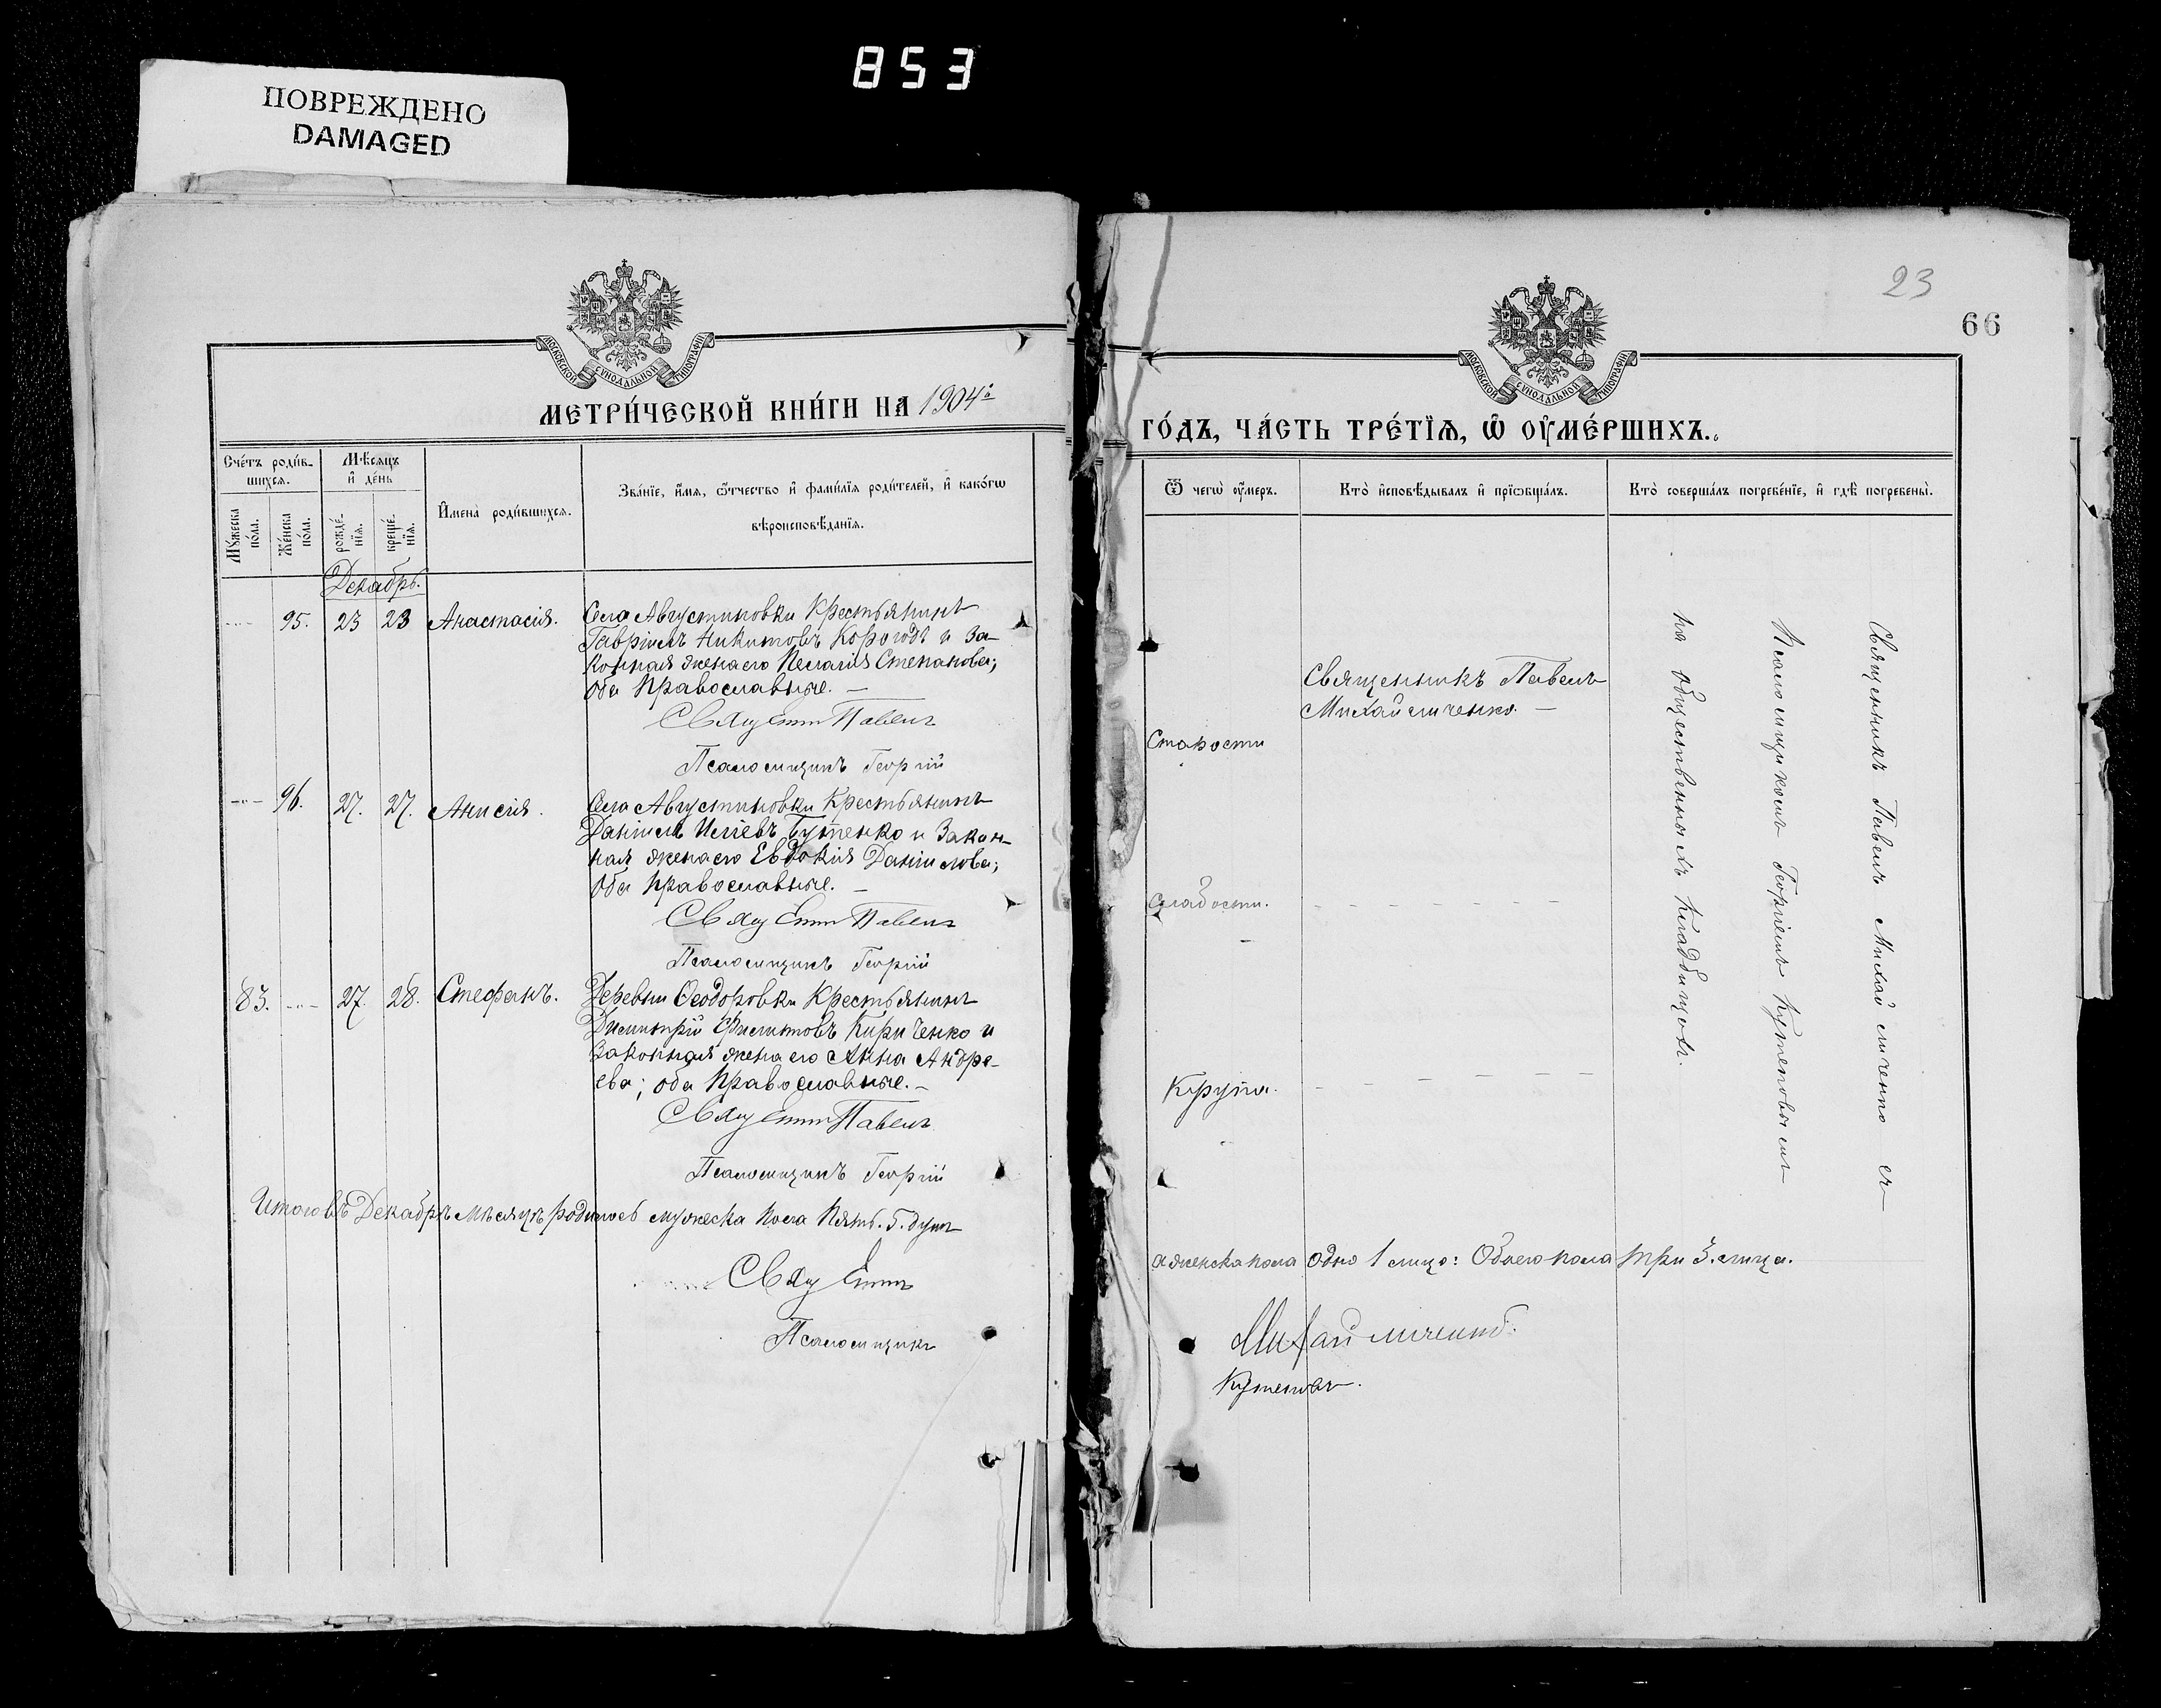 853
ПОВРЕЖДЕНО
DAMAGED
МОСКОВСКОЙ СѴНОДАЛЬНОЙ ТИПОГРАФІИ
МЕТРИ́ЧЕСКОЙ КНИ́ГИ НА 1904й
Сче́тъ роди́в-
шихся.
Мѣсяцъ
и҆ де́нь
Мꙋ́жеска
по́ла.
Же́нска
по́ла.
рожде́-
нїя.
креще́-
нїя.
И҆мена̀ роди́вшихся.
Зва́нїе, и҆́мя, ѻ҆́тчество и҆ фами́лїя роди́телей, и҆ како́гѡ
вѣроисповѣ́данїя.
Декабрь.
95. 23 23 Анастасія. Села Августиновки Крестьянинъ
Гавріилъ Никитовъ Корогодъ и за-
конная жена его Пелагія Степанова;
оба Православные. —
Священникъ Павелъ
Псаломщикъ Георгій
96. 27. 27. Анисія. Села Августиновки Крестьянинъ
Даніилъ Иліевъ Бутенко и Закон-
ная жена его Евдокія Даніилова;
Оба Православные. —
Священникъ Павелъ
Псаломщикъ Георгій
83. 27. 28. Стефанъ. Деревни Ѳеодоровки Крестьянинъ
Димитрій Филитовъ Кириченко и
Законная жена его Анна Андре-
ева; оба Православные. —
Священникъ Павелъ
Псаломщикъ Георгій
Итого въ Декабрѣ мѣсяцѣ родилось мужеска пола Пять. 5. душъ
Священникъ
Псаломщикъ
23
66
МОСКОВСКОЙ СѴНОДАЛЬНОЙ ТИПОГРАФІИ
ГО́ДЪ, ЧА́СТЬ ТРЕ́ТЇѦ, Ѡ҆ ОУ҆МЕ́РШИХЪ.
Ѿ чегѡ̀ оу҆́меръ.
Кто̀ и҆сповѣ́дывалъ и҆ прїѡбща́лъ.
Кто̀ соверша́лъ погребе́нїе, и҆ гдѣ̀ погребены̀.
Старости
Священникъ Павелъ
Михайличенко. —
Слабости.
Крупа.
Священникъ Павелъ Михайличенко съ
Псаломщикомъ Георгіемъ Кутеповымъ
на общественномъ кладбищѣ.
а женска пола одно 1 лицо: Обоего пола три 3. лица.
Михайличенко.
Кутеповъ.